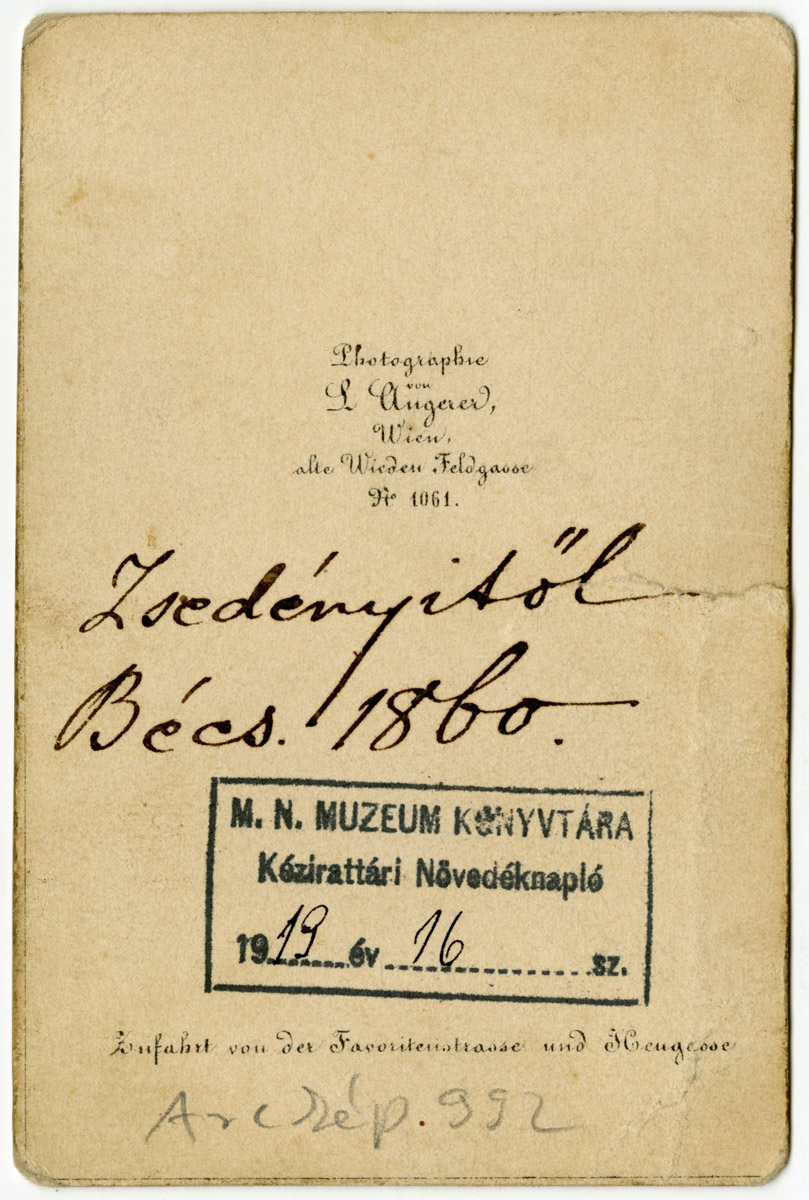 Photographie
von
L Angerer,
Wien,
alte Wieden Feldgasse
No 1061.
Zsedényitől
Bécs. 1860.
M. N. MUZEUM KÖNYVTÁRA
Kézirattári Növedéknapló
1919 év 16 sz.
Zufahrt von der Favoritenstrasse und Heugasse
Arckép. 992